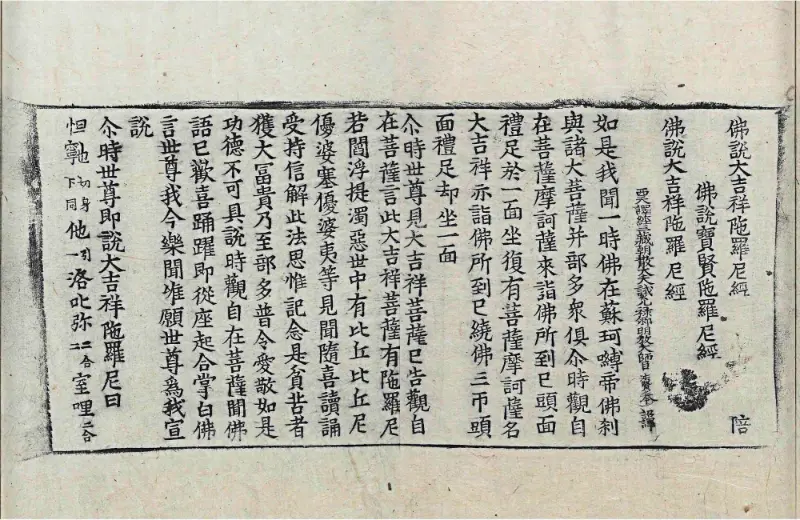 佛說大吉祥陁羅尼經　陪
佛說寶賢陁羅尼經
佛說大吉祥陁羅尼經
如是我聞一時佛在蘇珂嚩帝佛刹
與諸大菩薩并部多衆俱尒時觀自
在菩薩摩訶薩来詣佛所到已頭面
禮足於一面坐復有菩薩摩訶薩名
大吉祥亦詣佛所到已繞佛三帀頭
面禮足却坐一面
尒時世尊見大吉祥菩薩已告觀自
在菩薩言此大吉祥菩薩有陁羅尼
若閻浮提濁惡世中有比丘比丘尼
優婆塞優婆夷等見聞隨喜讀誦
受持信解此法思惟記念是貧苦者
獲大富貴乃至部多普令愛敬如是
功德不可具說時觀自在菩薩聞佛
語已歡喜踊躍即從座起合掌白佛
言世尊我今樂聞惟願世尊爲我宣
說
尒時世尊即說大吉祥陁羅尼曰
怛寧也切身下同他一引洛叱弥二二合室哩二合